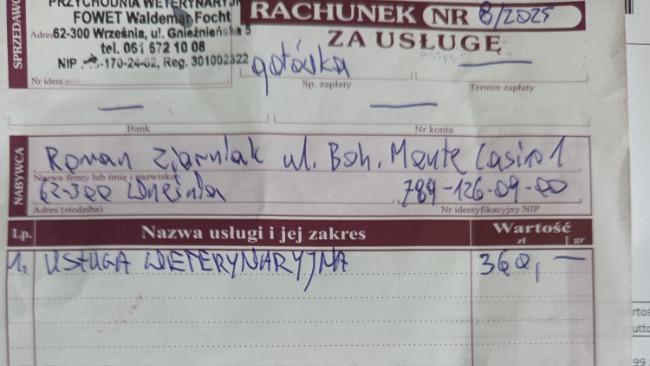 SPRZEDAWCA
PRZYCHODNIA WETERYNARYJN
FOWET Waldemar Focht
Adres 62-300 Września, ul. Gnieźnieńska
tel. 061 672 10 08
NIP -170-24-62, Reg. 301002322
Nr ident.
RACHUNEK NR 8/2025
ZA USŁUGĘ
gotówka —
Sp. zapłaty Termin zapłaty
— —
Bank Nr konta
NABYWCA
Roman Ziarniak ul. Boh. Monte Casino 1
Nazwa firmy lub imię i nazwisko
62-300 Września 789-126-09-00
Adres (siedziba) Nr identyfikacyjny NIP
Lp. Nazwa usługi i jej zakres Wartość
zł gr
1. USŁUGA WETERYNARYJNA 360,—